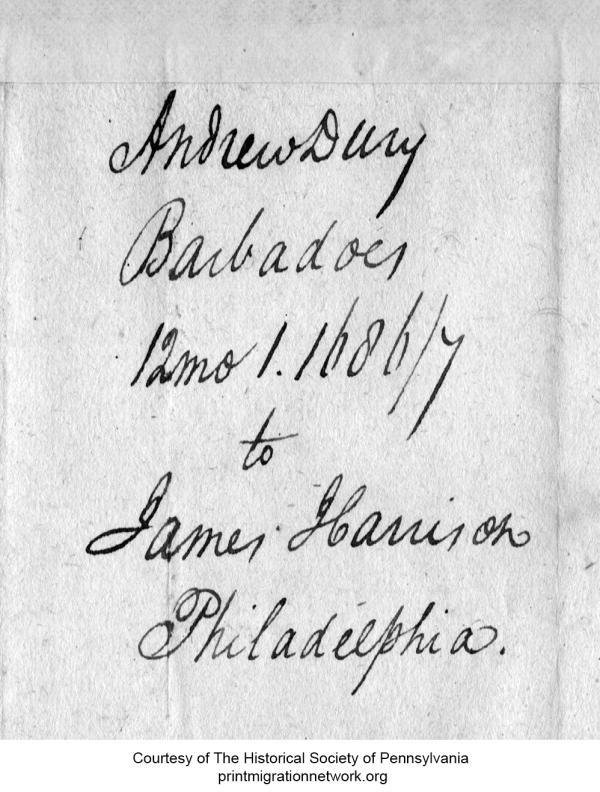 Andrew Dury
Barbadoes
12mo 1. 1686/7
to
James Harrison
Philadelphia.
Courtesy of The Historical Society of Pennsylvania
printmigrationnetwork.org